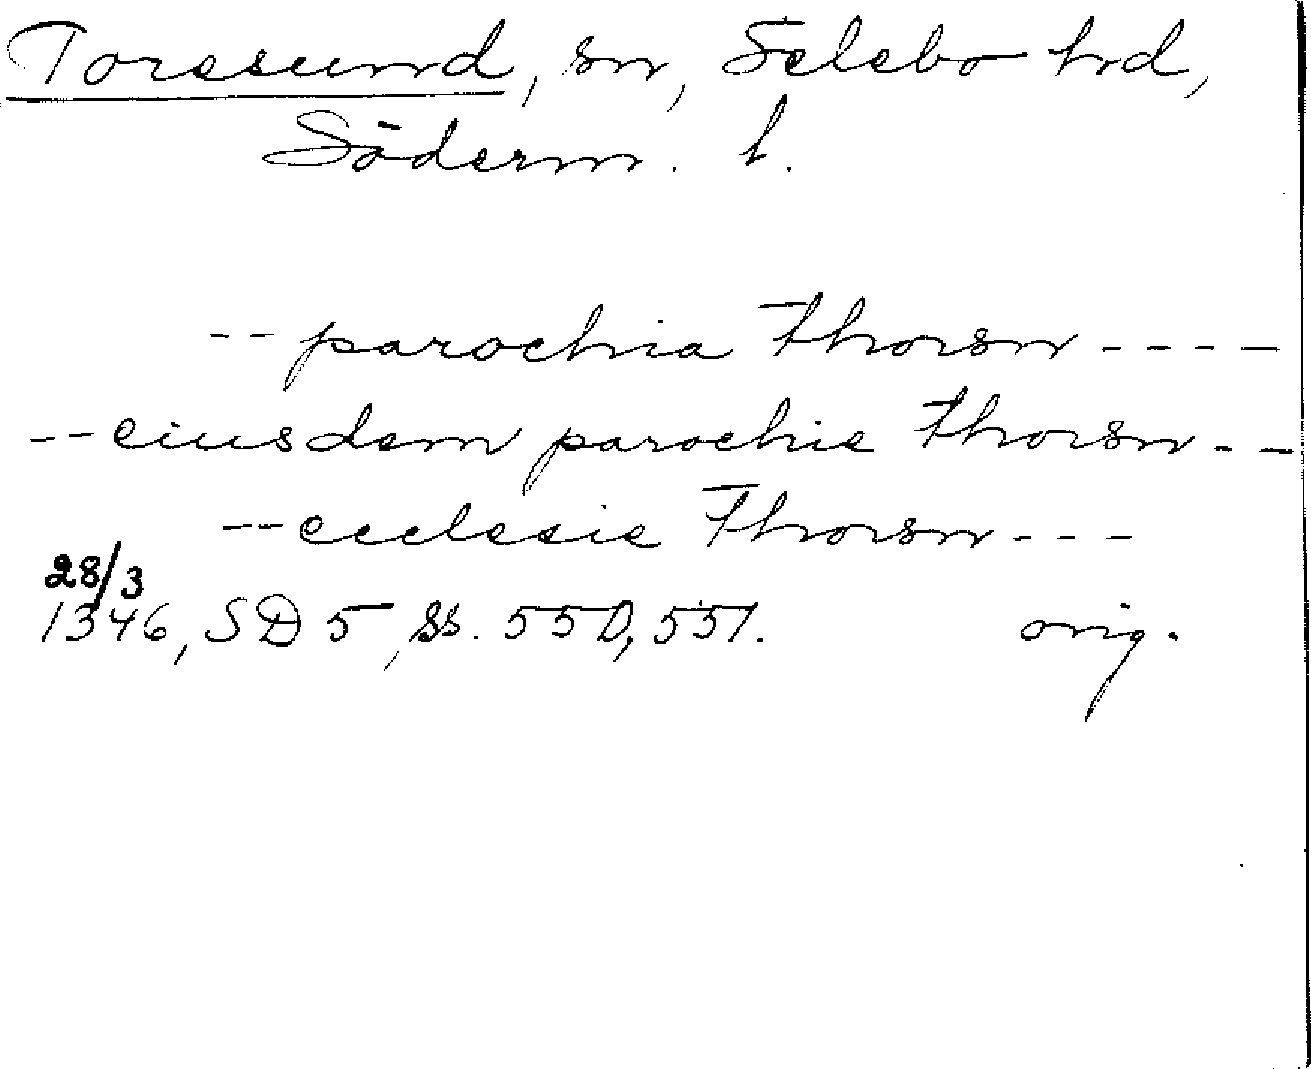 Toresund, sn, Selebo hd,
Söderm. l.
-- parochia Thorsn ----
-- eiusdem parochie Thorsn --
-- ecclesie Thorsn ---
28/3
1346, SD 5, ss. 550, 551. orig.